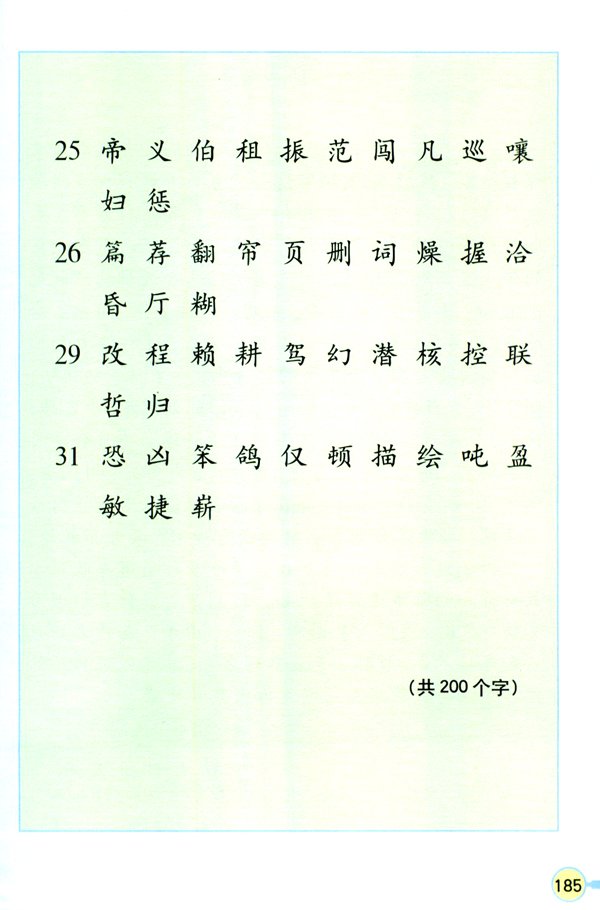 25 帝 义 伯 租 振 范 闯 凡 巡 嚷
妇 惩
26 篇 荐 翻 帘 页 删 词 燥 握 洽
昏 厅 糊
29 改 程 赖 耕 驾 幻 潜 核 控 联
哲 归
31 恐 凶 笨 鸽 仅 顿 描 绘 吨 盈
敏 捷 崭
(共200个字)
185